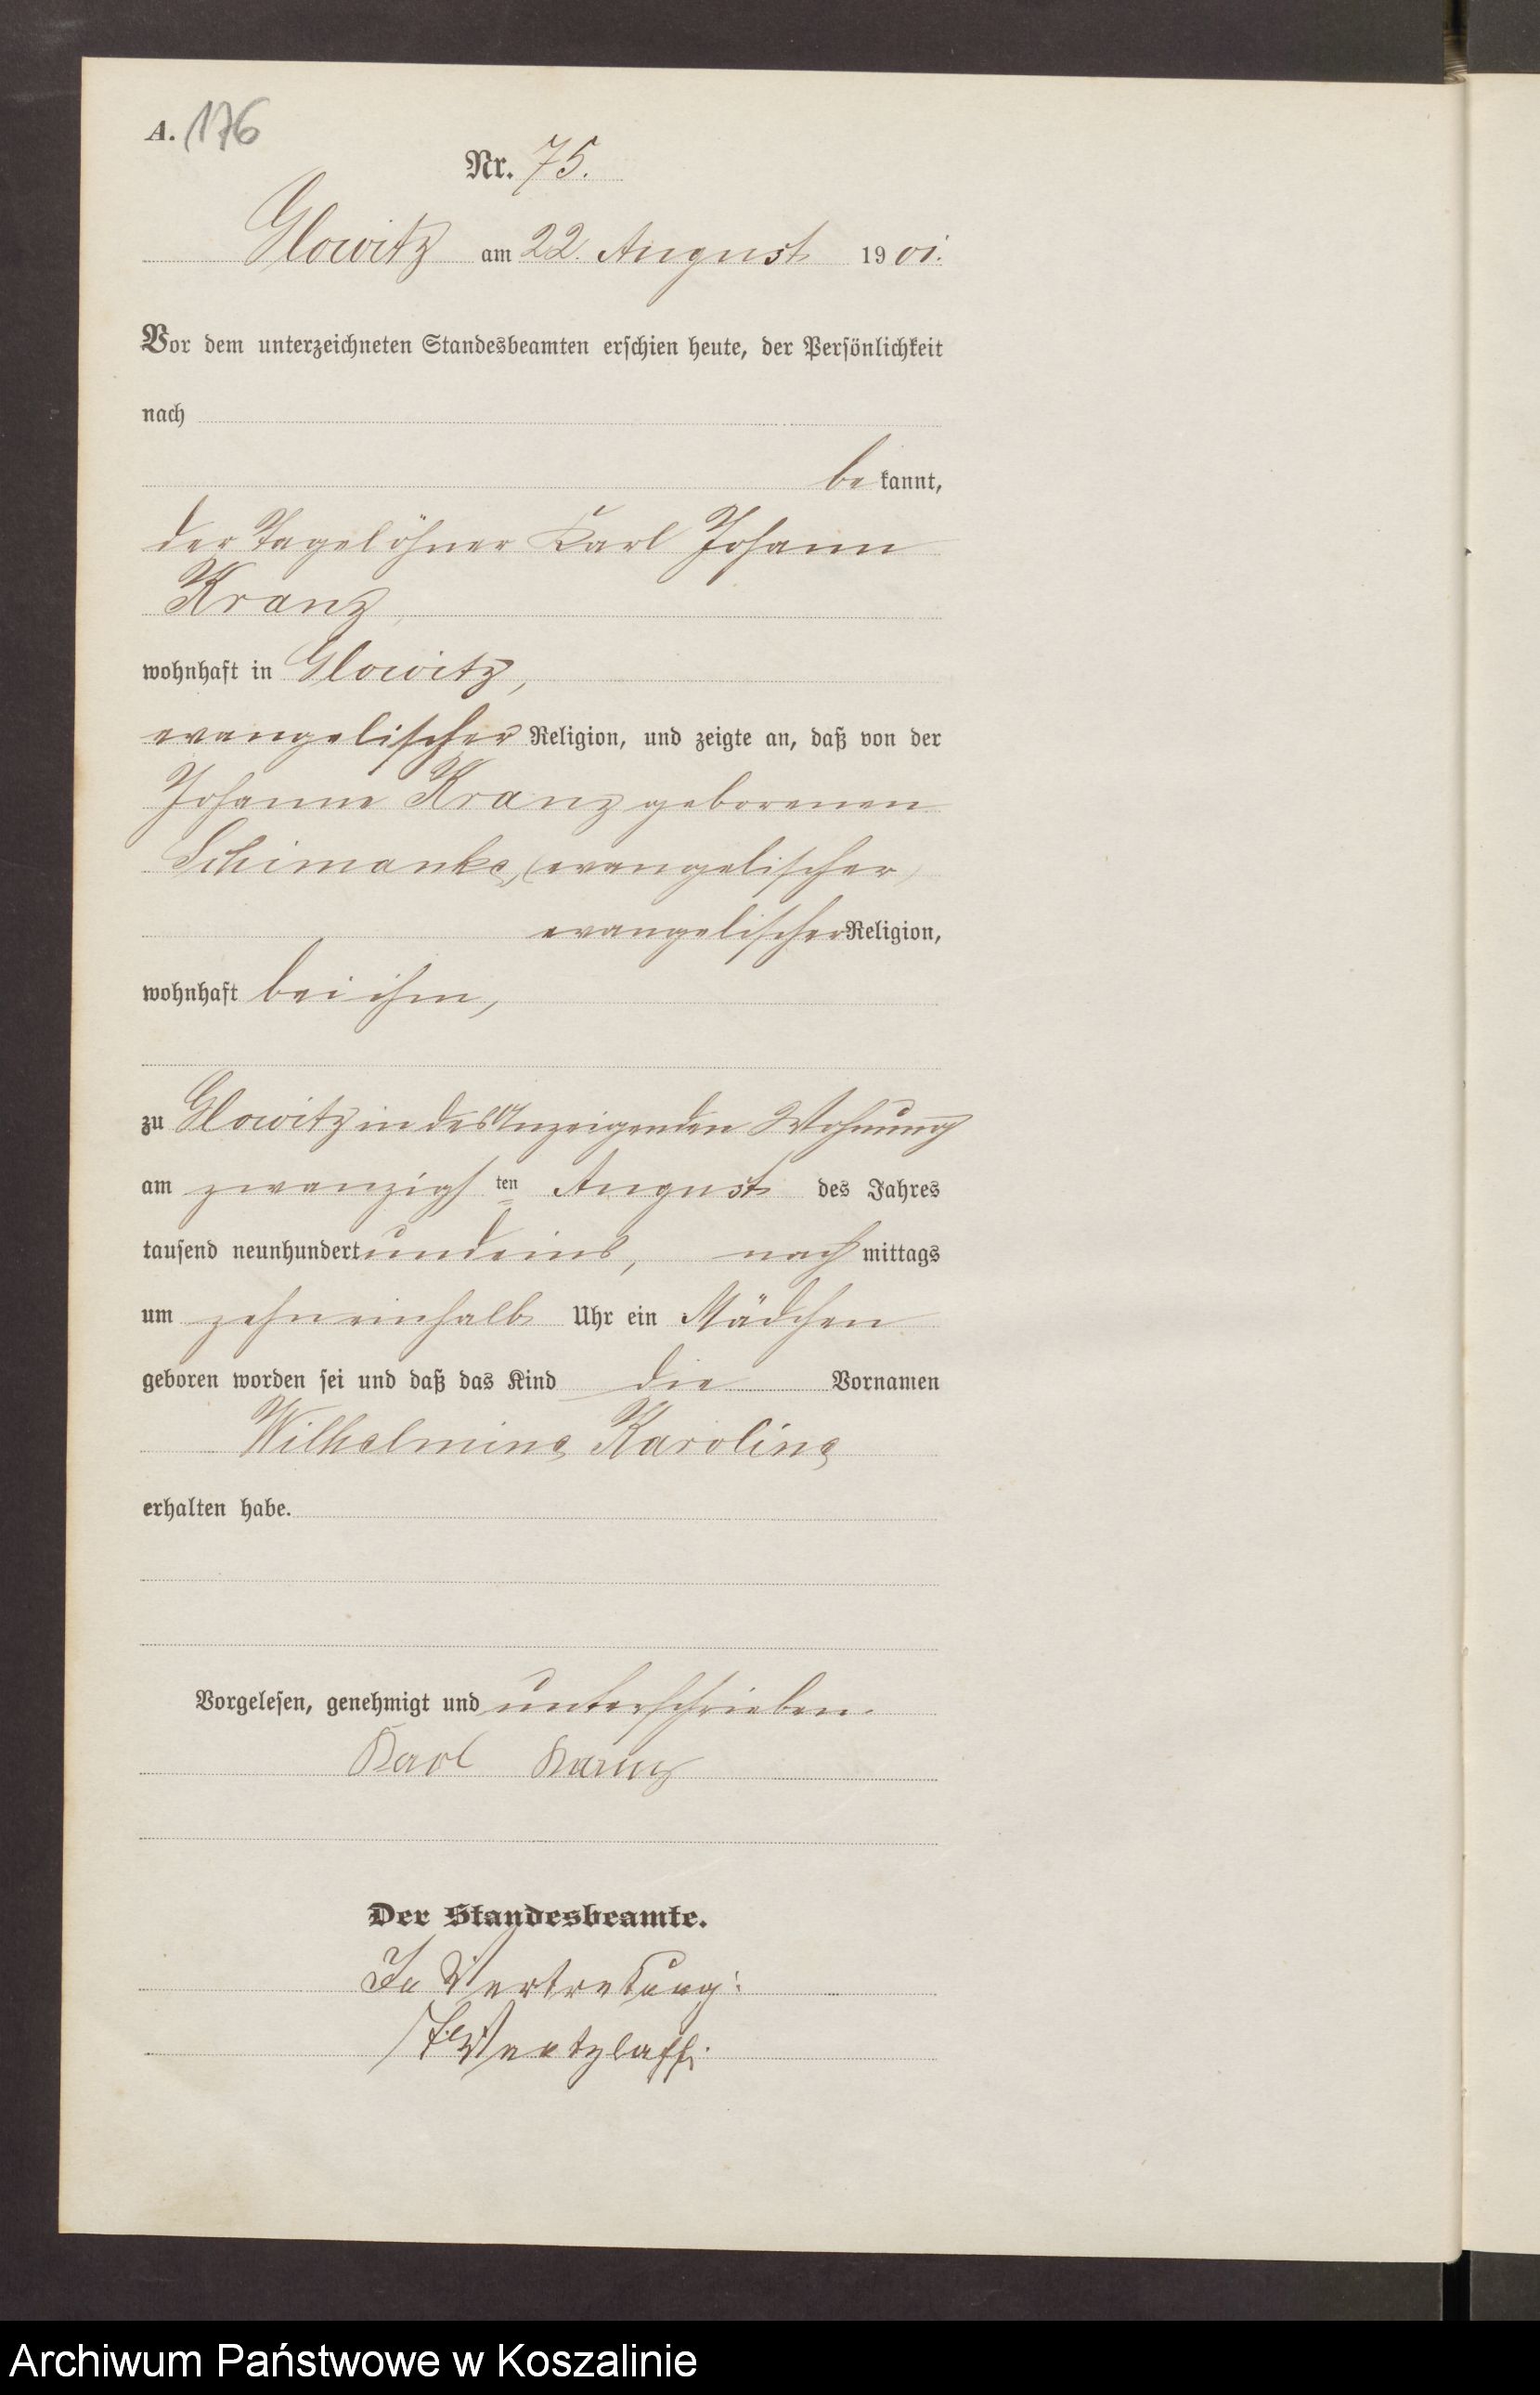 A. 176
Nr. 75.
Glowitz am 22. August 1901.
Vor dem unterzeichneten Standesbeamten erschien heute, der Persönlichkeit
nach
bekannt,
der Tagelöhner Karl Johann
Kranz
wohnhaft in Glowitz,
evangelischer Religion, und zeigte an, daß von der
Johanne Kranz geborenen
Schimanke, (evangelischer)
evangelischer Religion,
wohnhaft bei ihm,
zu Glowitz in des Anzeigenden Wohnung
am zwanzigsten August des Jahres
tausend neunhundert undeins, nachmittags
um zehneinhalb Uhr ein Mädchen
geboren worden sei und daß das Kind die Vornamen
Wilhelmine Karoline
erhalten habe.
Vorgelesen, genehmigt und unterschrieben.
Karl
Der Standesbeamte.
In Vertretung:
Wentzlaff.
Archiwum Państwowe w Koszalinie